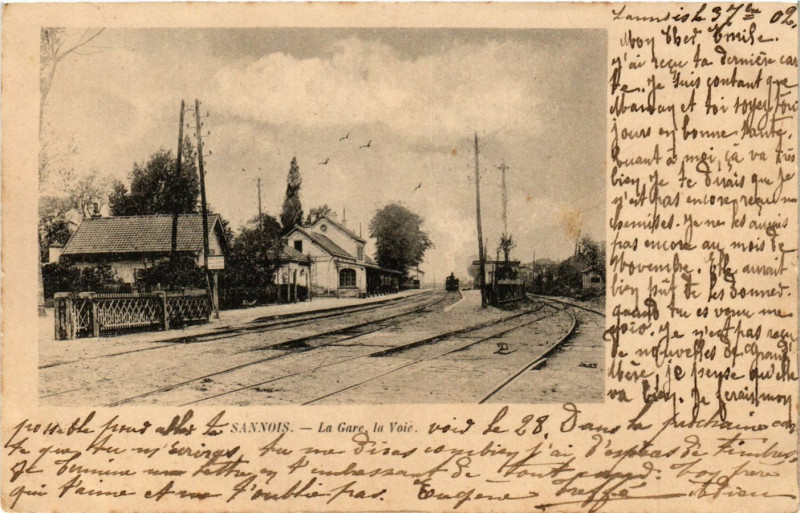 Sannois le 3 7bre 02.
Mon Cher Emile.
J'ai reçu ta dernière car
te. Je suis contant que
Maman et toi soyez tou
jours en bonne santé.
Quant à moi, ça va très
bien. Je te dirais que je
n'est pas encore reçu mes
chemises. Je ne les aurais
pas encore au mois de
Novembre. Elle aurait
bien put de les donner
quand tu es venu me
voir. Je n'est pas reçu
de nouvelles de Grand
Mère, je pense qu'elle
va bien. Je ferais mon
possible pour aller te
SANNOIS. — La Gare, la Voie.
voir le 28. Dans la prochaine car
te que tu m'écriras, tu me diras combien j'ai d'espèces de timbres.
Je termine ma lettre en t'embrassant de tout cœur. Ton frère
qui t'aime et ne t'oublie pas. Eugène